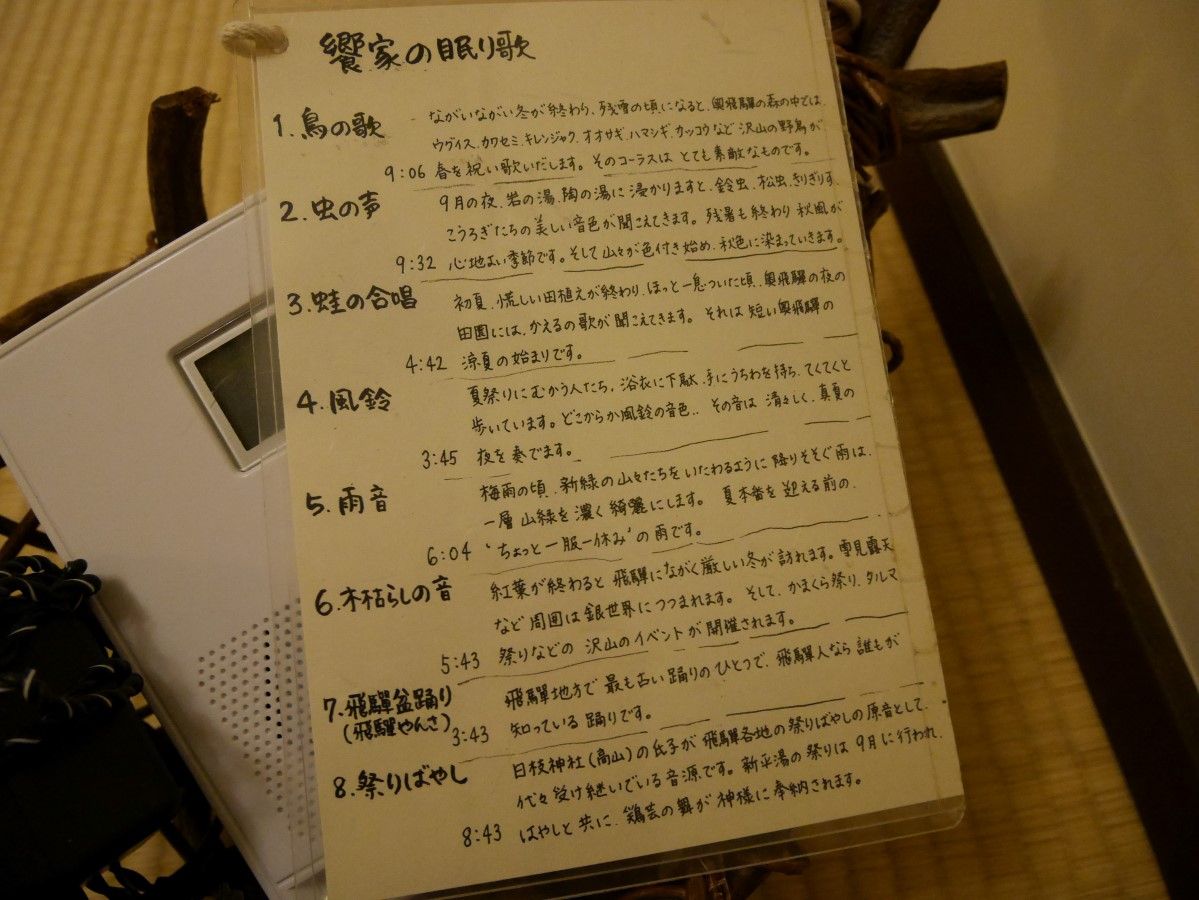 饗家の眠り歌
1.鳥の歌
ながいながい冬が終わり、残雪の頃になると、奥飛騨の森の中では、
ウグイス、カワセミ、キレンジャク、オオサギ、ハマシギ、カッコウなど沢山の野鳥が
9:06 春を祝い歌いだします。そのコーラスはとても素敵なものです。
2.虫の声
9月の夜、岩の湯、陶の湯に浸かりますと、鈴虫、松虫、きりぎりす、
こうろぎたちの美しい音色が聞こえてきます。残暑も終わり秋風が
9:32 心地よい季節です。そして山々が色付き始め、秋色に染まっていきます。
3.蛙の合唱
初夏、慌しい田植えが終わり、ほっと一息ついた頃、奥飛騨の夜の
田園には、かえるの歌が聞こえてきます。それは短い奥飛騨の
4:42 涼夏の始まりです。
4.風鈴
夏祭りにむかう人たち、浴衣に下駄、手にうちわを持ち、てくてくと
歩いています。どこからか風鈴の音色、、その音は清々しく、真夏の
3:45 夜を奏でます。
5.雨音
梅雨の頃、新緑の山々たちをいたわるように降りそそぐ雨は、
一層山緑を濃く綺麗にします。夏本番を迎える前の、
6:04 “ちょっと一服一休み”の雨です。
6.木枯らしの音
紅葉が終わると飛騨にながく厳しい冬が訪れます。雪見露天
など周囲は銀世界につつまれます。そして、かまくら祭り、タルマ
5:43 祭りなどの沢山のイベントが開催されます。
7.飛騨盆踊り
(飛騨やんさ)
飛騨地方で最も古い踊りのひとつで、飛騨人なら誰もが
3:43 知っている踊りです。
8.祭りばやし
日枝神社(高山)の氏子が飛騨各地の祭りばやしの原音として、
代々受け継いでいる音源です。新平湯の祭りは9月に行われ、
8:43 ばやしと共に、鶏芸の舞が神様に奉納されます。